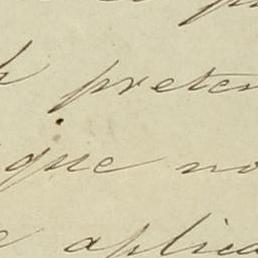 preten
que no
aplica